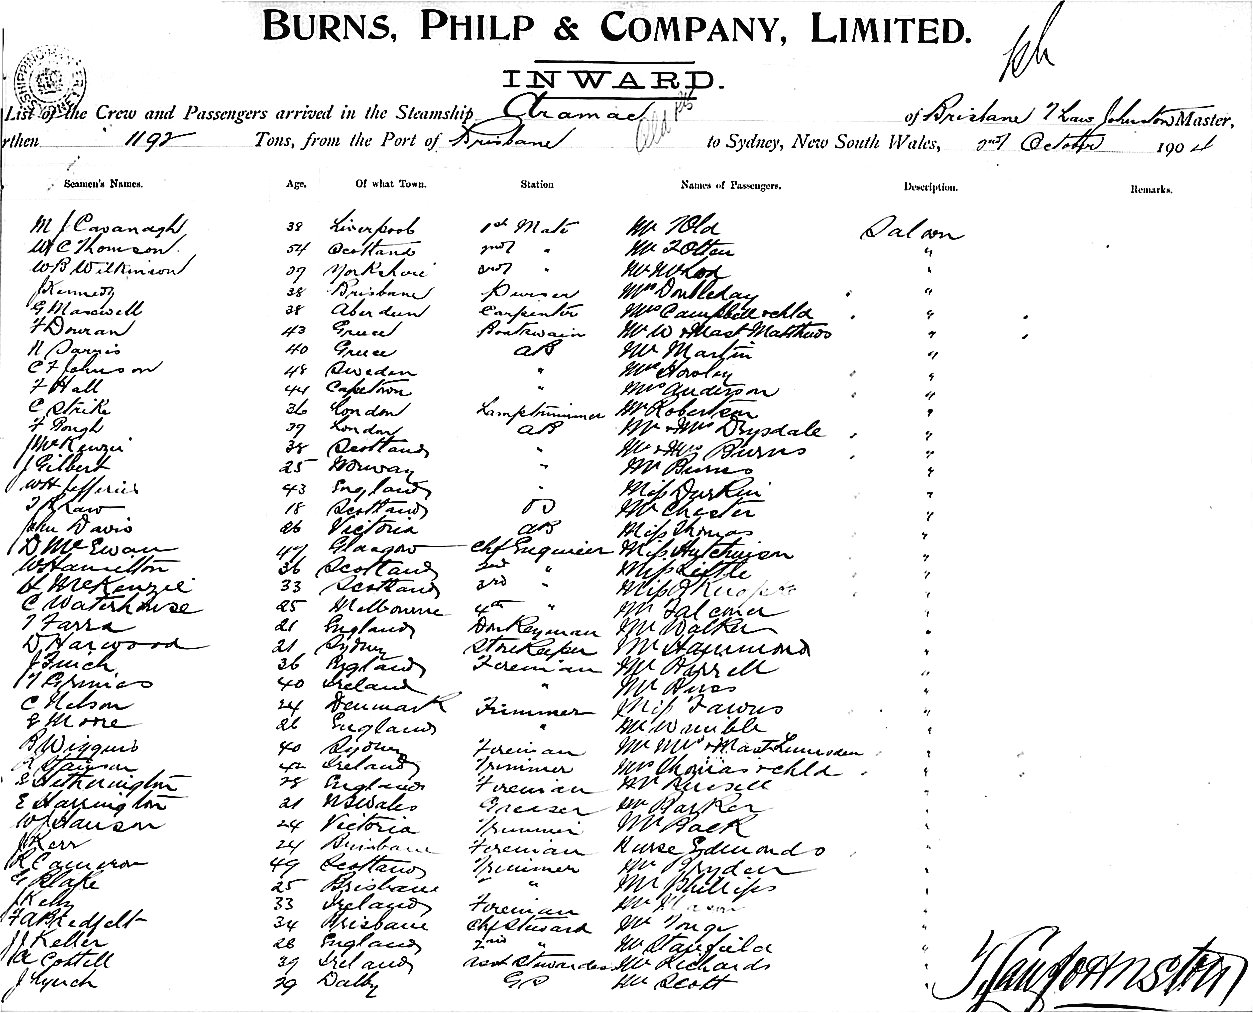 BURNS, PHILP & COMPANY, LIMITED.
INWARD.
List of the Crew and Passengers arrived in the Steamship Aramac of Brisbane Law Johnston Master,
rthen 1192 Tons, from the Port of Brisbane to Sydney, New South Wales, 2nd October 1904
Seamen's Names. Age. Of what Town. Station Names of Passengers. Description. Remarks.
M J Cavanagh 38 Liverpool 1st Mate Mr Old Saloon
W C Thomson 54 Scotland 2nd " Mr Totten "
W B Wilkinson 37 Yorkshire 3rd " Mr Wood "
J Kennedy 38 Brisbane Purser Mrs Doubleday "
G Maxwell 38 Aberdeen Carpenter Mrs Campbell & chld "
F Douran 43 Greece Boatswain Mr W & Mast Matthews "
N Sarnis 40 Greece AB Mr Martin "
C F Johnson 48 Sweden " Mrs Howley "
F Hall 44 Capetown " Mrs Anderson "
C Strike 36 London Lamptrimmer Mr Robertson "
F Gough 39 London AB Mr & Mrs Drysdale "
J McKenzie 38 Scotland " Mr & Mrs Burns "
J Gilbert 25 Norway " Mr Burns "
W H Jefferies 43 England " Miss Durkin "
T Kraw 18 Scotland OS Mr Chester "
John Davis 26 Victoria AB Miss Thomas "
D McEwan 47 Glasgow Chf Engineer Miss Hutchinson "
W Hamilton 36 Scotland 2nd " Miss Little "
H McKenzie 33 Scotland 3rd " Miss "
C Waterhouse 25 Melbourne 4th " Mr Falconer "
T Farra 21 England Donkeyman Mr Walker "
D Harwood 21 Sydney Storekeeper Mr Hammond "
J Finch 36 England Fireman Mr Harrell "
40 Ireland " Mr Huss "
C Nelson 24 Denmark Trimmer Miss Fawns "
E Moore 26 England " Mr Wimble "
B Wiggins 40 Sydney Fireman Mr Mrs & Mast Lumsden "
42 Ireland Trimmer Mrs Thomas & chld "
E Hetherington 28 England Fireman Mr Russell "
E Harrington 21 NSWales Greaser Mr Barker "
W J Hanson 24 Victoria Trimmer Mr Back "
J Kerr 24 Brisbane Fireman Nurse Edmonds "
R Cameron 49 Scotland Trimmer Mr Bryden "
G Blake 25 Brisbane " Mr Phillips "
J Kelly 33 Ireland Fireman Mr "
F A B Redfelt 34 Brisbane Chf Steward Mr Tonge "
J J Keller 28 England 2nd " Mr Stanfield "
A Costell 39 Ireland Asst Stewardess Mr Richards "
J Lynch 29 Dalby GS Mr Scott "
Law Johnston